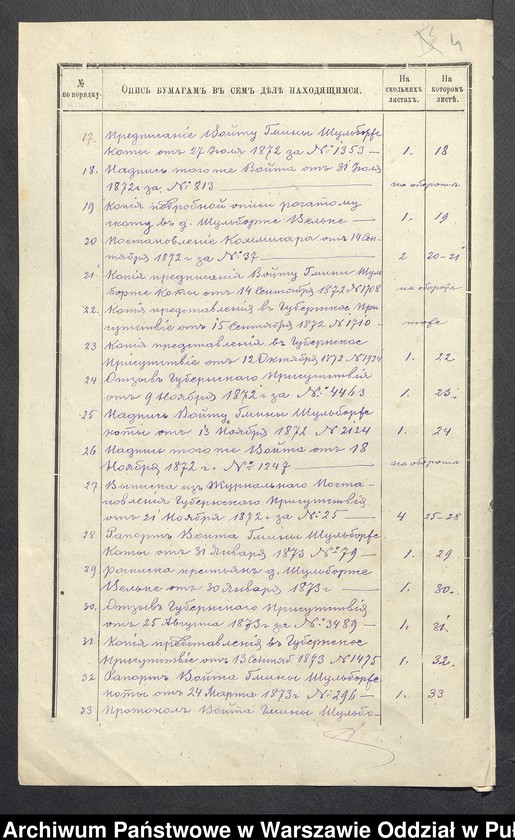 4
№ по порядку.
Опись бумагамъ въ семъ дѣлѣ находящимся.
На сколькихъ листахъ.
На которомъ листѣ.
17. Предписаніе Войту Гмины Шульборже
Коты отъ 27 Іюля 1872 за № 1353 — 1. 18
18. Надпись того же Войта отъ 31 Іюля
1872 г за № 813 — на оборотѣ
19 Копія подробной описи рогатому
скоту въ д. Шульборже Вельке — 1. 19
20 Постановленіе Коммисара отъ 14 Сен-
тября 1872 г за № 37 — 2 20-21
21 Копія предписанія Войту Гмины Шуль
борже Коты отъ 14 Сентября 1872 № 1708 на оборотѣ
22. Копія представленія въ Губернское При
сутствіе отъ 15 Сентября 1872 № 1710 - тоже
23 Копія представленія въ Губернское
Присутствіе отъ 12 Октября 1872 № 1924 1. 22
24 Отзывъ Губернскаго Присутствія
отъ 9 Ноября 1872 г за № 4463 1. 23
25 Надпись Войту Гмины Шульборже
коты отъ 13 Ноября 1872 № 2124 1. 24
26 Надпись того же Войта отъ 18
Ноября 1872 г. № 1247 — на оборотѣ
27 Выписка изъ Журнальнаго Поста-
новленія Губернскаго Присутствія
отъ 21 Ноября 1872 г за № 25 — 4 25-28
28 Рапортъ Войта Гмины Шульборже
Коты отъ 31 Января 1873 № 79 — 1. 29
29 Росписка крестьянъ д. Шульборже
Вельке отъ 30 Января 1873 г — 1. 30.
30. Отзывъ Губернскаго Присутствія
отъ 25 Августа 1873 г за № 3489 — 1. 31.
31 Копія представленія въ Губернское
Присутствіе отъ 13 Сентяб 1873 № 1475 1. 32.
32 Рапортъ Войта Гмины Шульборже
коты отъ 24 Марта 1873 г № 296 — 1. 33
33 Протоколъ Войта Гмины Шульбо-
Archiwum Państwowe w Warszawie Oddział w Puł